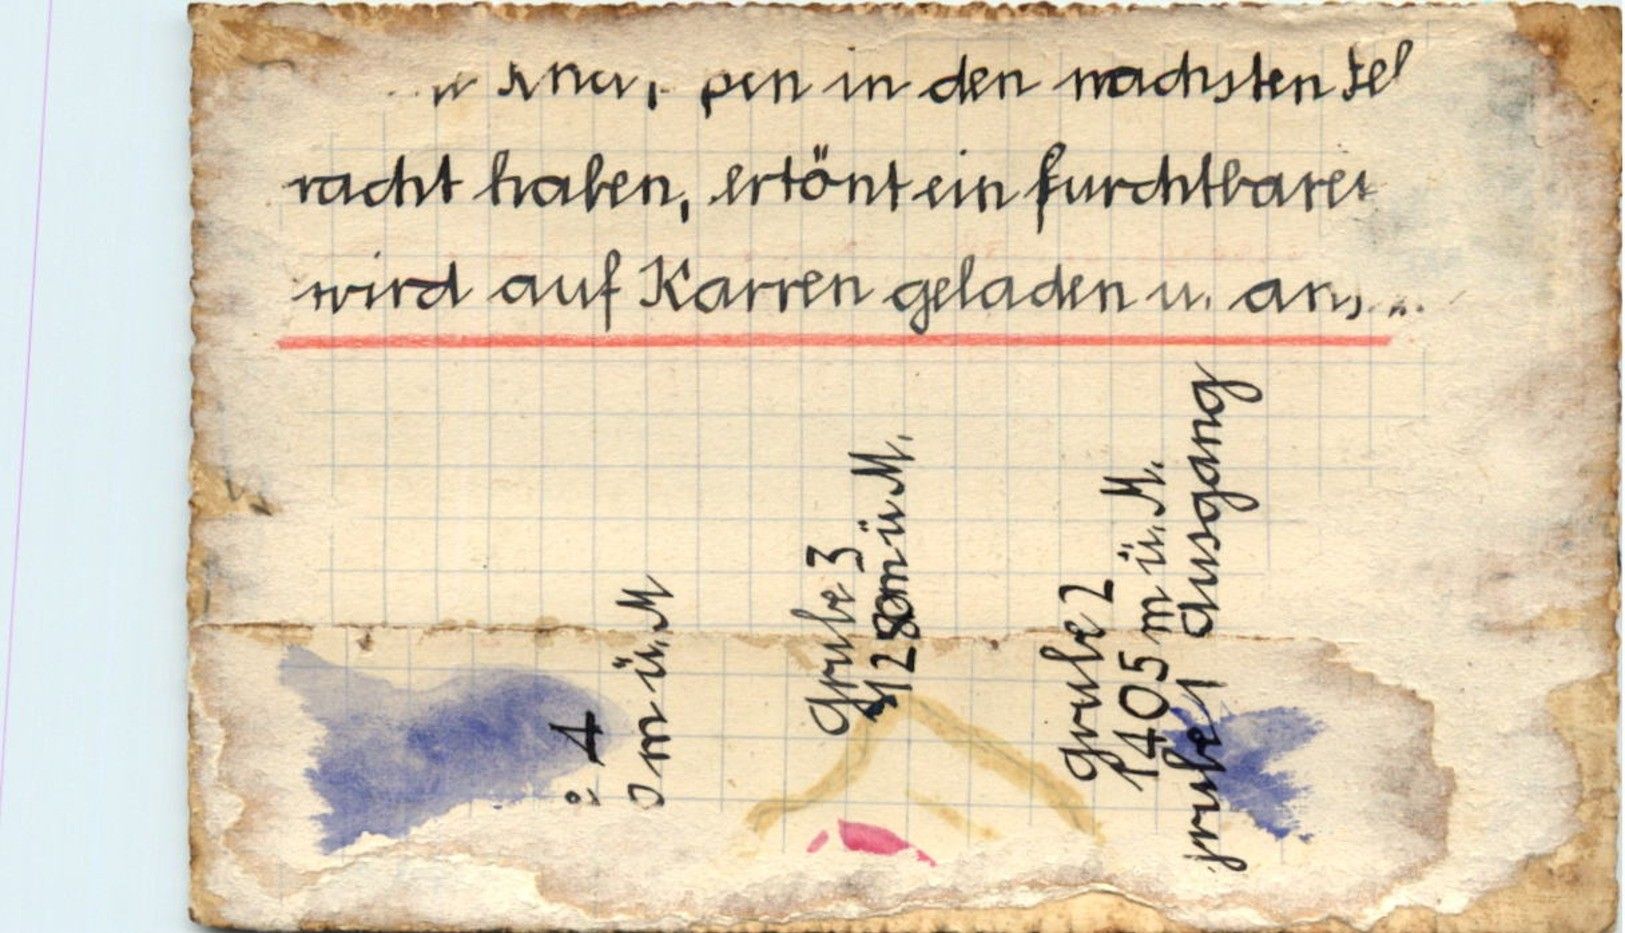 in den nächsten
racht haben, ertönt ein furchtbarer
wird auf Karren geladen u.
4
m ü. M
Grube 3
1280m ü. M.
Grube 2
1405 m ü. M.
Grube 1 Ausgang